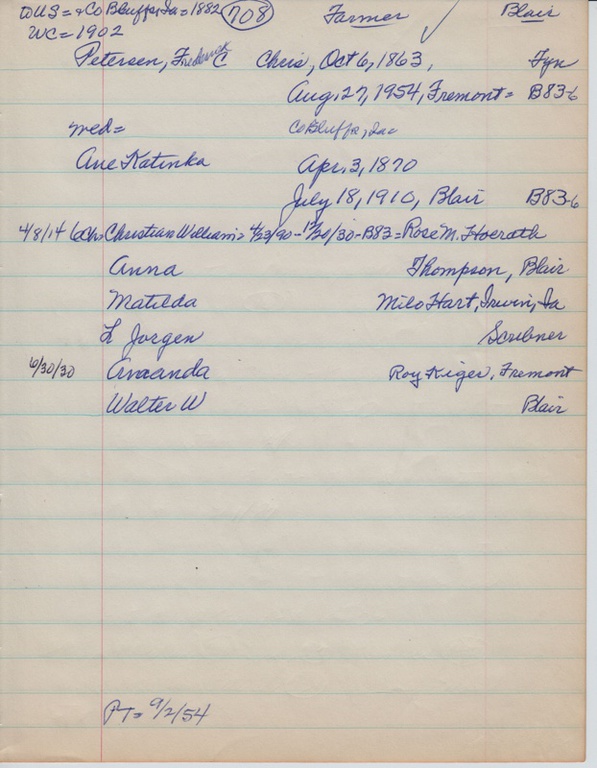 TO US = & Co Bluffs, Ia = 1882 708 Farmer ✓ Blair
WC = 1902
Petersen, Frederick C Chris, Oct 6, 1863, Fyn
Aug. 27, 1954, Fremont = B83-6
wed = Co Bluffs, Ia =
Ane Katinka Apr. 3, 1870
July 18, 1910, Blair B83-6
4/8/14 6Ch: Christian William = 4/23/90 - 12/20/30 - B83 = Rose M. Hoerath
Anna Thompson, Blair
Matilda Milo Hart, Irwin, Ia
L Jorgen Scribner
6/30/30 Amanda Roy Kiger, Fremont
Walter W Blair
PT = 9/2/54